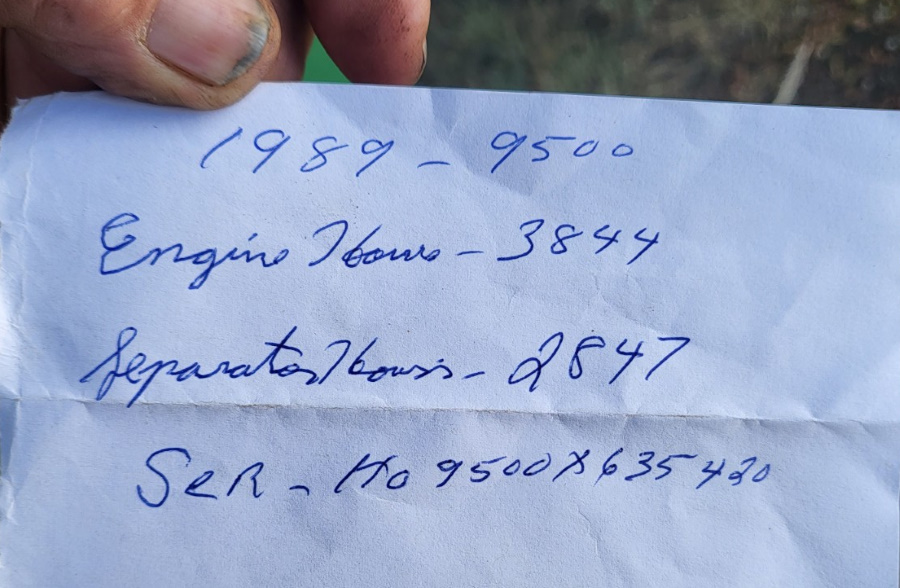 1989 - 9500
Engine Hours - 3844
Separator Hours - 2847
SER - Ho 9500X635420